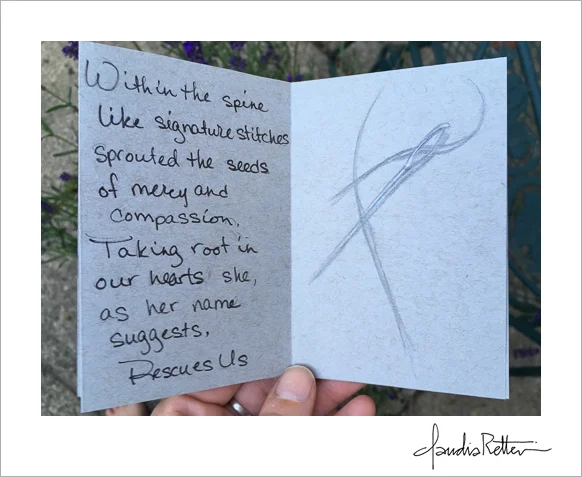 Within the spine
like signature stitches
sprouted the seeds
of mercy and
compassion.
Taking root in
our hearts she,
as her name
suggests,
Rescues Us
Claudia Retter